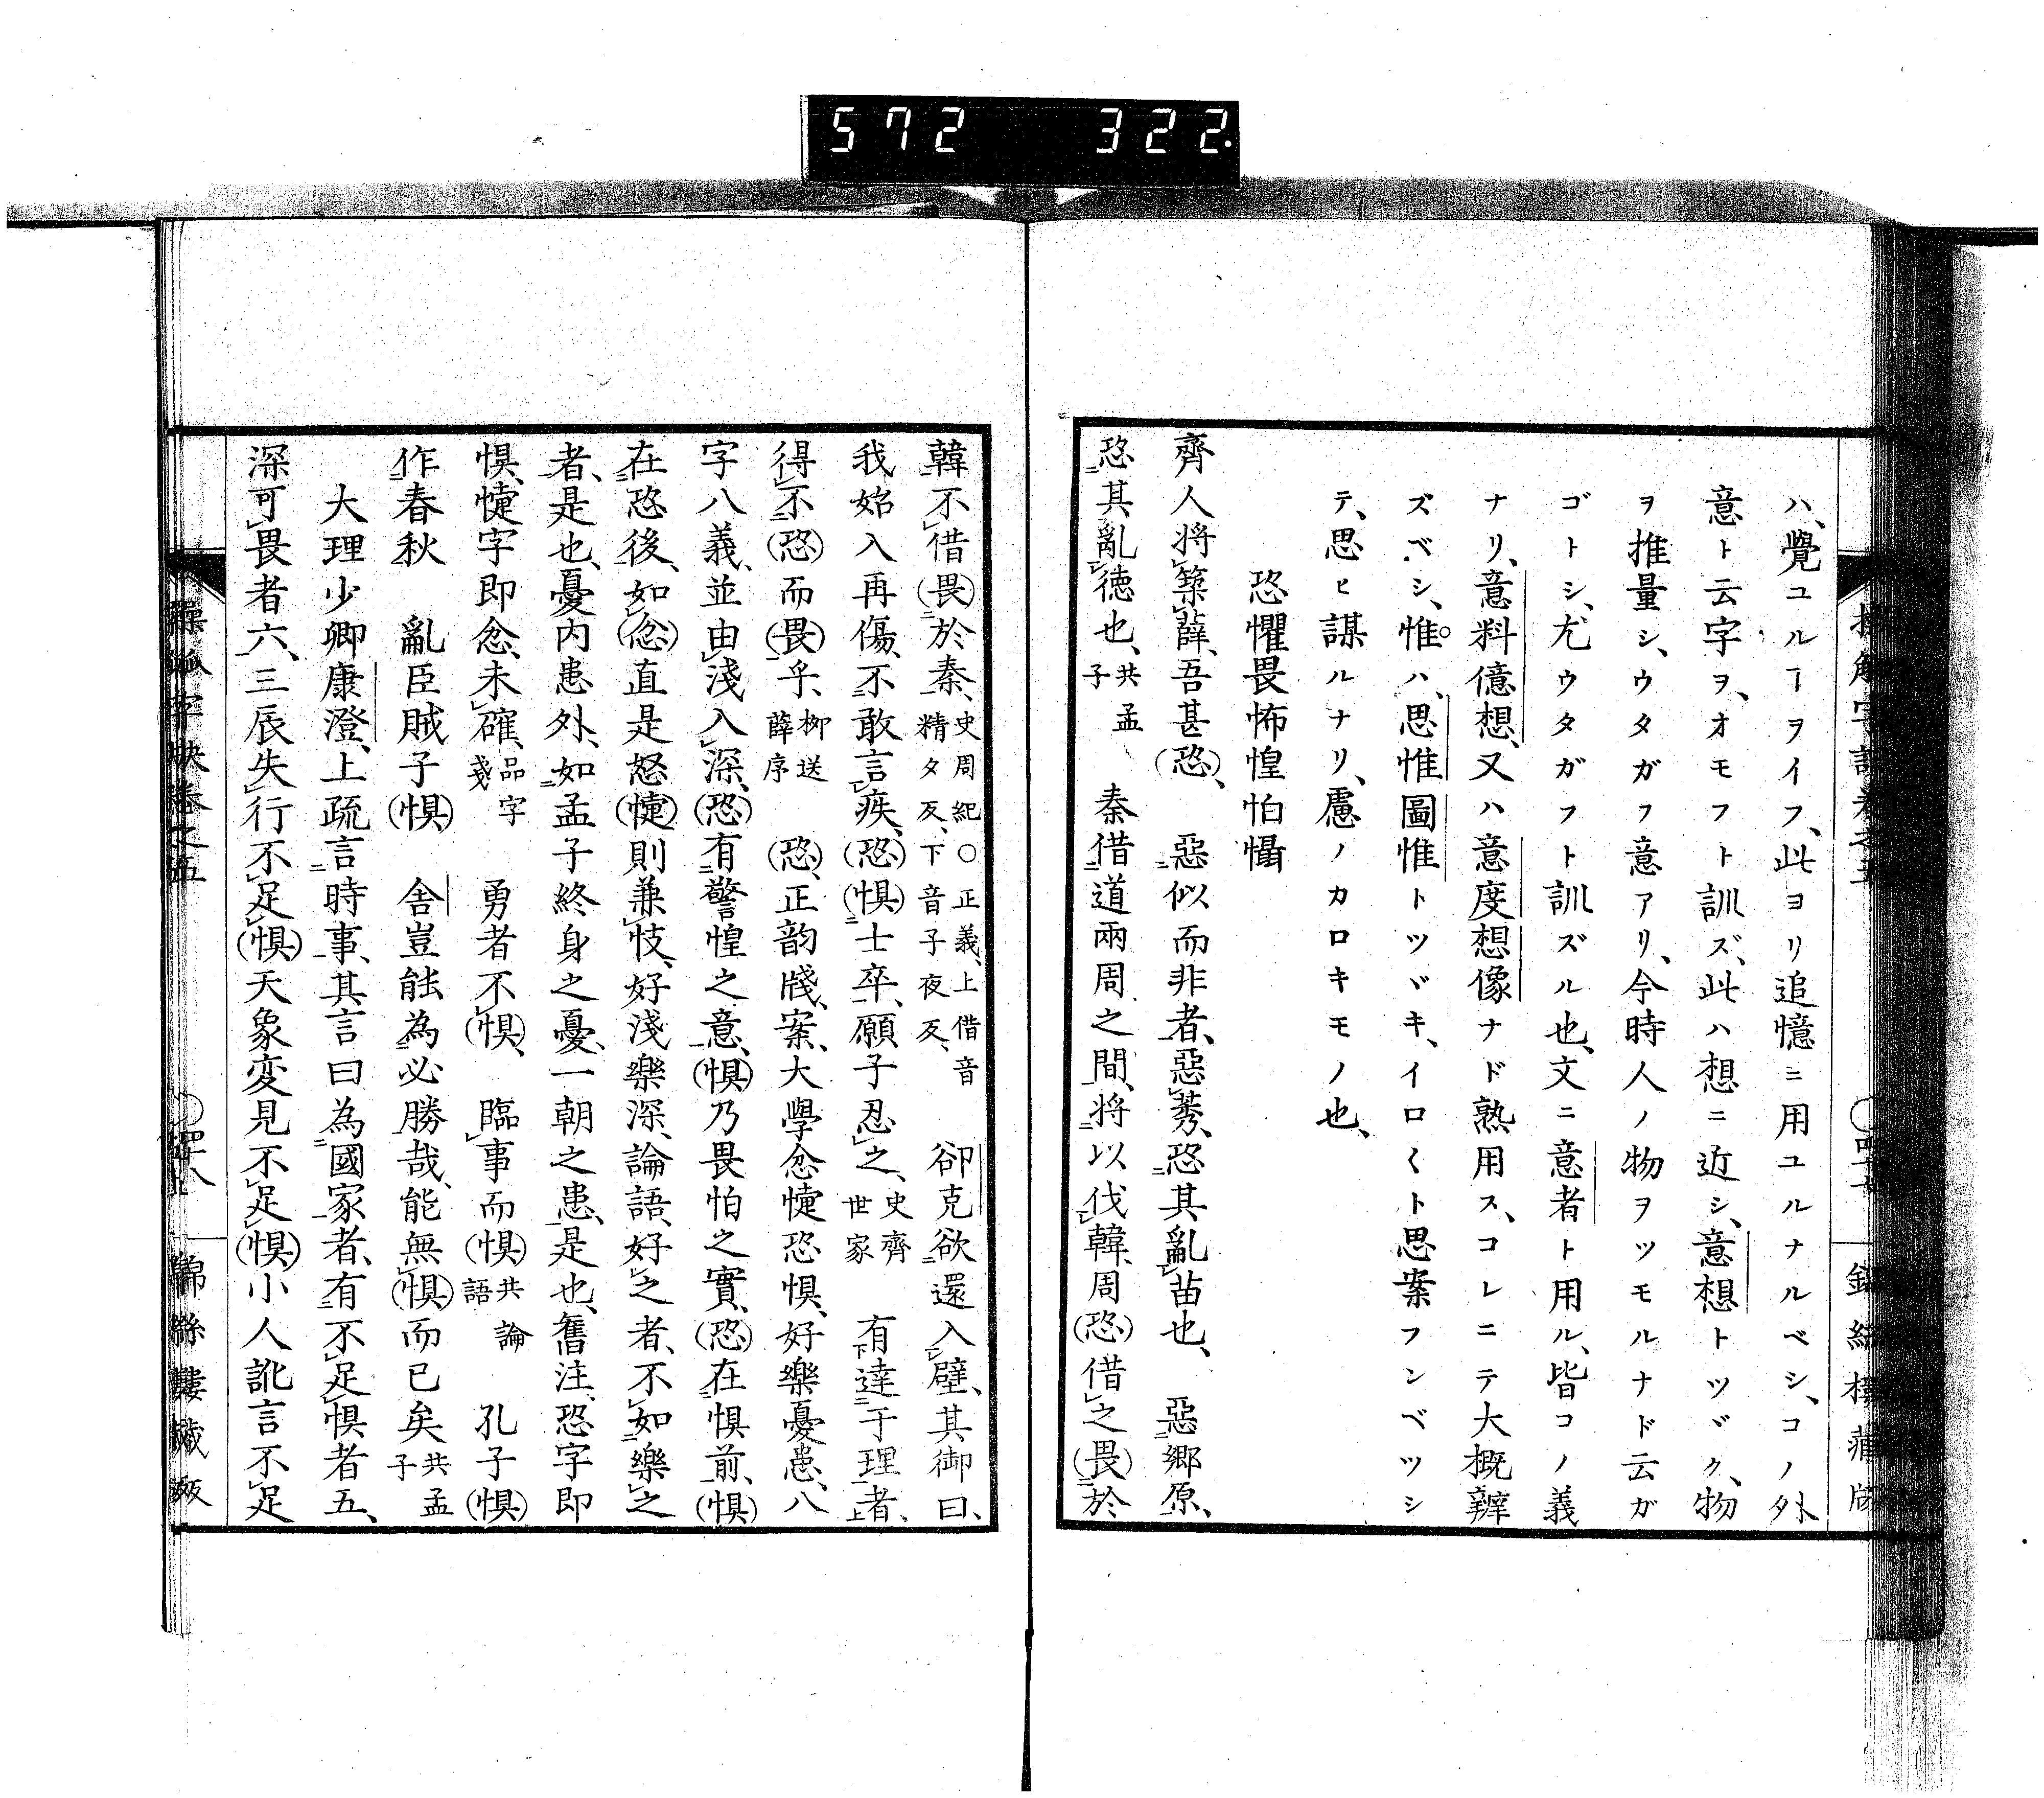 572 322
ハ、覺ユルヿヲイフ、此ヨリ追憶ニ用ユルナルベシ、コノ外
意ト云字ヲ、オモフト訓ズ、此ハ想ニ近シ、意想トツヾク、物
ヲ推量シ、ウタガフ意アリ、今時人ノ物ヲツモルナド云ガ
ゴトシ、尤ウタガフト訓ズル也、文ニ意者ト用ル、皆コノ義
ナリ、意料億想、又ハ意度想像ナド熟用ス、コレニテ大概辨
ズベシ、惟ハ、思惟圖惟トツヾキ、イロ〱ト思案フンベツシ
テ、思ヒ謀ルナリ、慮ノカロキモノ也、
恐懼畏怖惶怕懾
齊人將築薛、吾甚恐、 惡似而非者、惡莠、恐其亂苗也、 惡鄉原、
恐其亂德也、共孟子 秦借道兩周之間、將以伐韓、周恐借之畏於
韓不借畏於秦、史周紀〇正義、上借音精夕反、下音子夜反、 郤克欲還入壁、其御曰、
我始入再傷、不敢言疾、恐懼士卒、願子忍之、史齊世家 有達于理者、
得不恐而畏乎、柳送薛序 恐、正韵牋、案、大學忿懥恐惧、好樂憂患、八
字八義、並由淺入深、恐有警惶之意、惧乃畏怕之實、恐在惧前、惧
在恐後、如忿直是怒懥則兼忮、好淺樂深、論語、好之者、不如樂之
者、是也、憂內患外、如孟子終身之憂、一朝之患、是也、舊注、恐字即
惧、懥字即忿、未確、品字戔 勇者不惧、 臨事而惧共論語 孔子惧
作春秋 亂臣賊子惧 舍豈能為必勝哉、能無惧而已矣共孟子
大理少卿康澄、上疏言時事、其言曰為國家者、有不足惧者五、
深可畏者六、三辰失行不足惧天象変見不足惧小人訛言不足